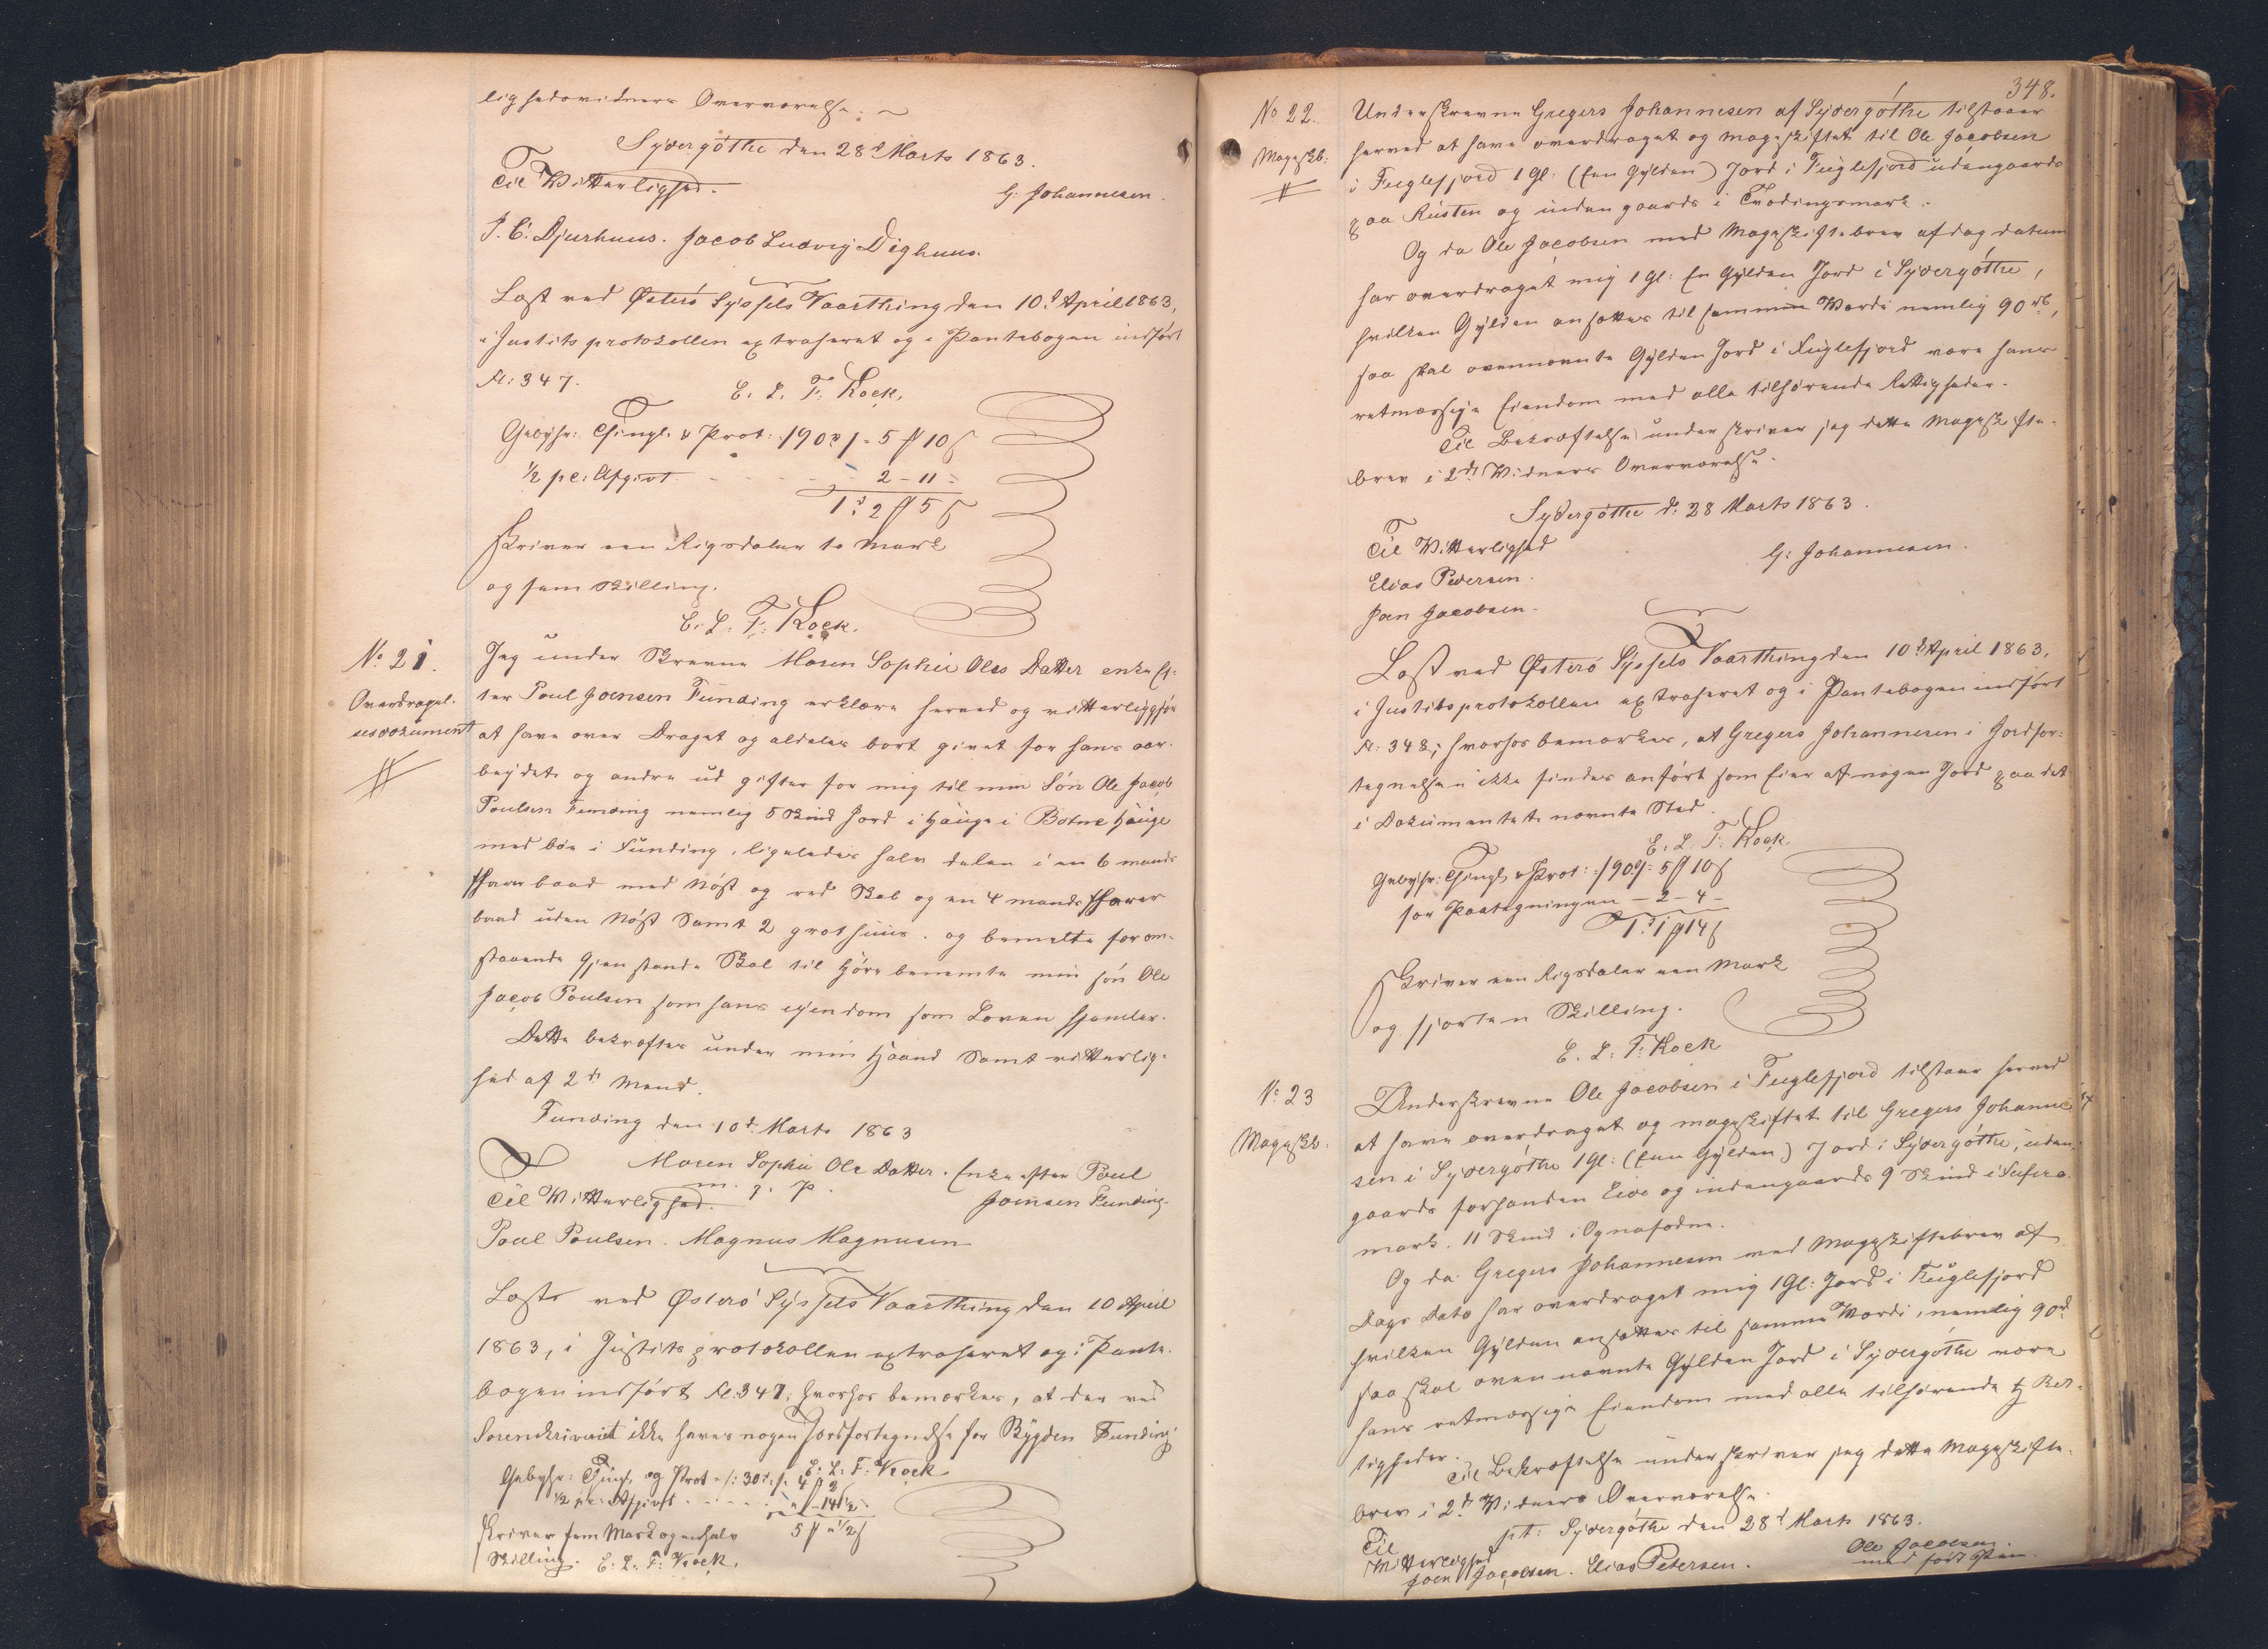 lighedsvidners Overværelse. ~
Sydergöthe den 28d Marts 1863.
Til Vitterlighed.
G: Johannesen.
J. C. Djurhuus. Jacob Ludvig Dighuus.
Læst ved Österö Syssels Vaarthing den 10d April 1863,
i Justitsprotokollen extraheret og i Pantebogen indført
fl: 347.
E. L. F. Kock.
Gebyhr: Thingl. & Prot: /90rd/ = 5 ʄ 10 ß
½ pc: Afgivt - - - 2 - 11 -
1rd 2 ʄ 5 ß
skriver een Rigsdaler to Mark
og fem Skilling.
E. L. F: Kock.
No 21.
Overdragel-
sesdokument
Jeg under Skrevne Maren Sophie Oles Datter enke Ef-
ter Poul Joensen Funding erklære herved og vitterliggjør
at have over Draget og aldeles bort givet for hans aar-
beydet og andre ud gifter for mig til min Søn Ole Jacob
Poulsen Funding nemlig 5 Skind Jord i Hauge i Botne Hauge
med böe i Funding, ligeledes halv delen i en 6 mands
fharer baad med Nøst og red Skab og en 4 mands fharer
baad uden Nøst Samt 2 grothuus. og bemelte foran-
staaende Gjenstande Skal til Høre benemte min søn Ole
Jacob Poulsen som hans eyendom som Loven hjemler.
Dette bekræftes under min Haand Samt vitterlig-
hed af 2de Mend.
Funding den 10d Marts 1863
Maren Sophie Ole Datter. Enke efter Poul
m. g. P.
Joensen Funding.
Til Vitterlighed.
Poul Poulsen. Magnus Magnusen
Læst ved Österö Syssels Vaarthing den 10 April
1863, i Justitsprotokollen extraheret og i Pante-
bogen indført fl: 347, hvorhos bemærkes, at der ved
Sorenskriveriet ikke haves nogen Jordfortegnelse for Bygden Funding
E. L. F: Kock
Gebyhr: Thingl. og Prot = /: 30rd/. 4 ʄ 2
½ pc: Afgivt - - - " - 14½ -
5 ʄ " ½ ß
skriver fem Mark og en halv
Skilling. E. L. F: Kock.
348.
No 22.
Mageskb:
Underskrevne Gregers Johannesen af Sydergöthe tilstaaer
herved at have overdraget og mageskiftet til Ole Jacobsen
i Fuglefjord 1 Gl: (Een Gylden) Jord i Fuglefjord udengaards
paa Rusten og inden gaards i Tradingsmark.
Og da Ole Jacobsen med Mageskiftebrev af dag datum
har overdraget mig 1 gl: En Gylden Jord i Sydergöthe,
hvilken Gylden ansættes til samme Værdi nemlig 90 rd,
saa skal ovennævnte Gylden Jord i Fuglefjord være hans
retmæssige Eiendom med alle tilhørende Rettigheder.
Til Bekræftelse underskriver jeg dette Mageskifte-
brev i 2de Vidners Overværelse.
Sydergöthe d: 28 Marts 1863.
Til Vitterlighed
G: Johannesen.
Elias Petersen.
Joen Jacobsen.
Læst ved Österö Syssels Vaarthing den 10d April 1863,
i Justitsprotokollen extraheret og i Pantebogen indført
fl: 348; hvorhos bemærkes, at Gregers Johannesen i Jordfor-
tegnelsen ikke findes anført som Eier af nogen Jord paa det
i Dokumentet nævnte Sted.
E. L. F: Kock.
Gebyhr: Thingl. & Prot: /90rd/ = 5 ʄ 10 ß
for Paategningen - 2 - 4 -
1rd 1 ʄ 14 ß
skriver een Rigsdaler een Mark
og fjorten Skilling.
E. L. F: Kock
No 23
Mageskb:
Underskrevne Ole Jacobsen i Fuglefjord tilstaaer herved
at have overdraget og mageskiftet til Gregers Johanne-
sen i Sydergöthe 1 Gl: (Een Gylden) Jord i Sydergöthe, uden-
gaards forhanden Eide og indengaards 9 Skind i
mark. 11 Skind i
Og da Gregers Johannesen med Mageskiftebrev af
Dags Dato har overdraget mig 1 Gl: Jord i Fuglefjord
hvilken Gylden ansættes til samme Værdi, nemlig 90rd
saa skal oven nævnte Gylden Jord i Sydergöthe være
hans retmæssige Eiendom med alle tilhørende Ret-
tigheder.
Til Bekræftelse underskriver jeg dette Mageskifte-
brev i 2de Vidners Overværelse.
pt: Sydergöthe den 28d Marts 1863.
Til
Vitterlighed
Ole Jacobsen.
med ført Pen.
Joen Jacobsen. Elias Petersen.